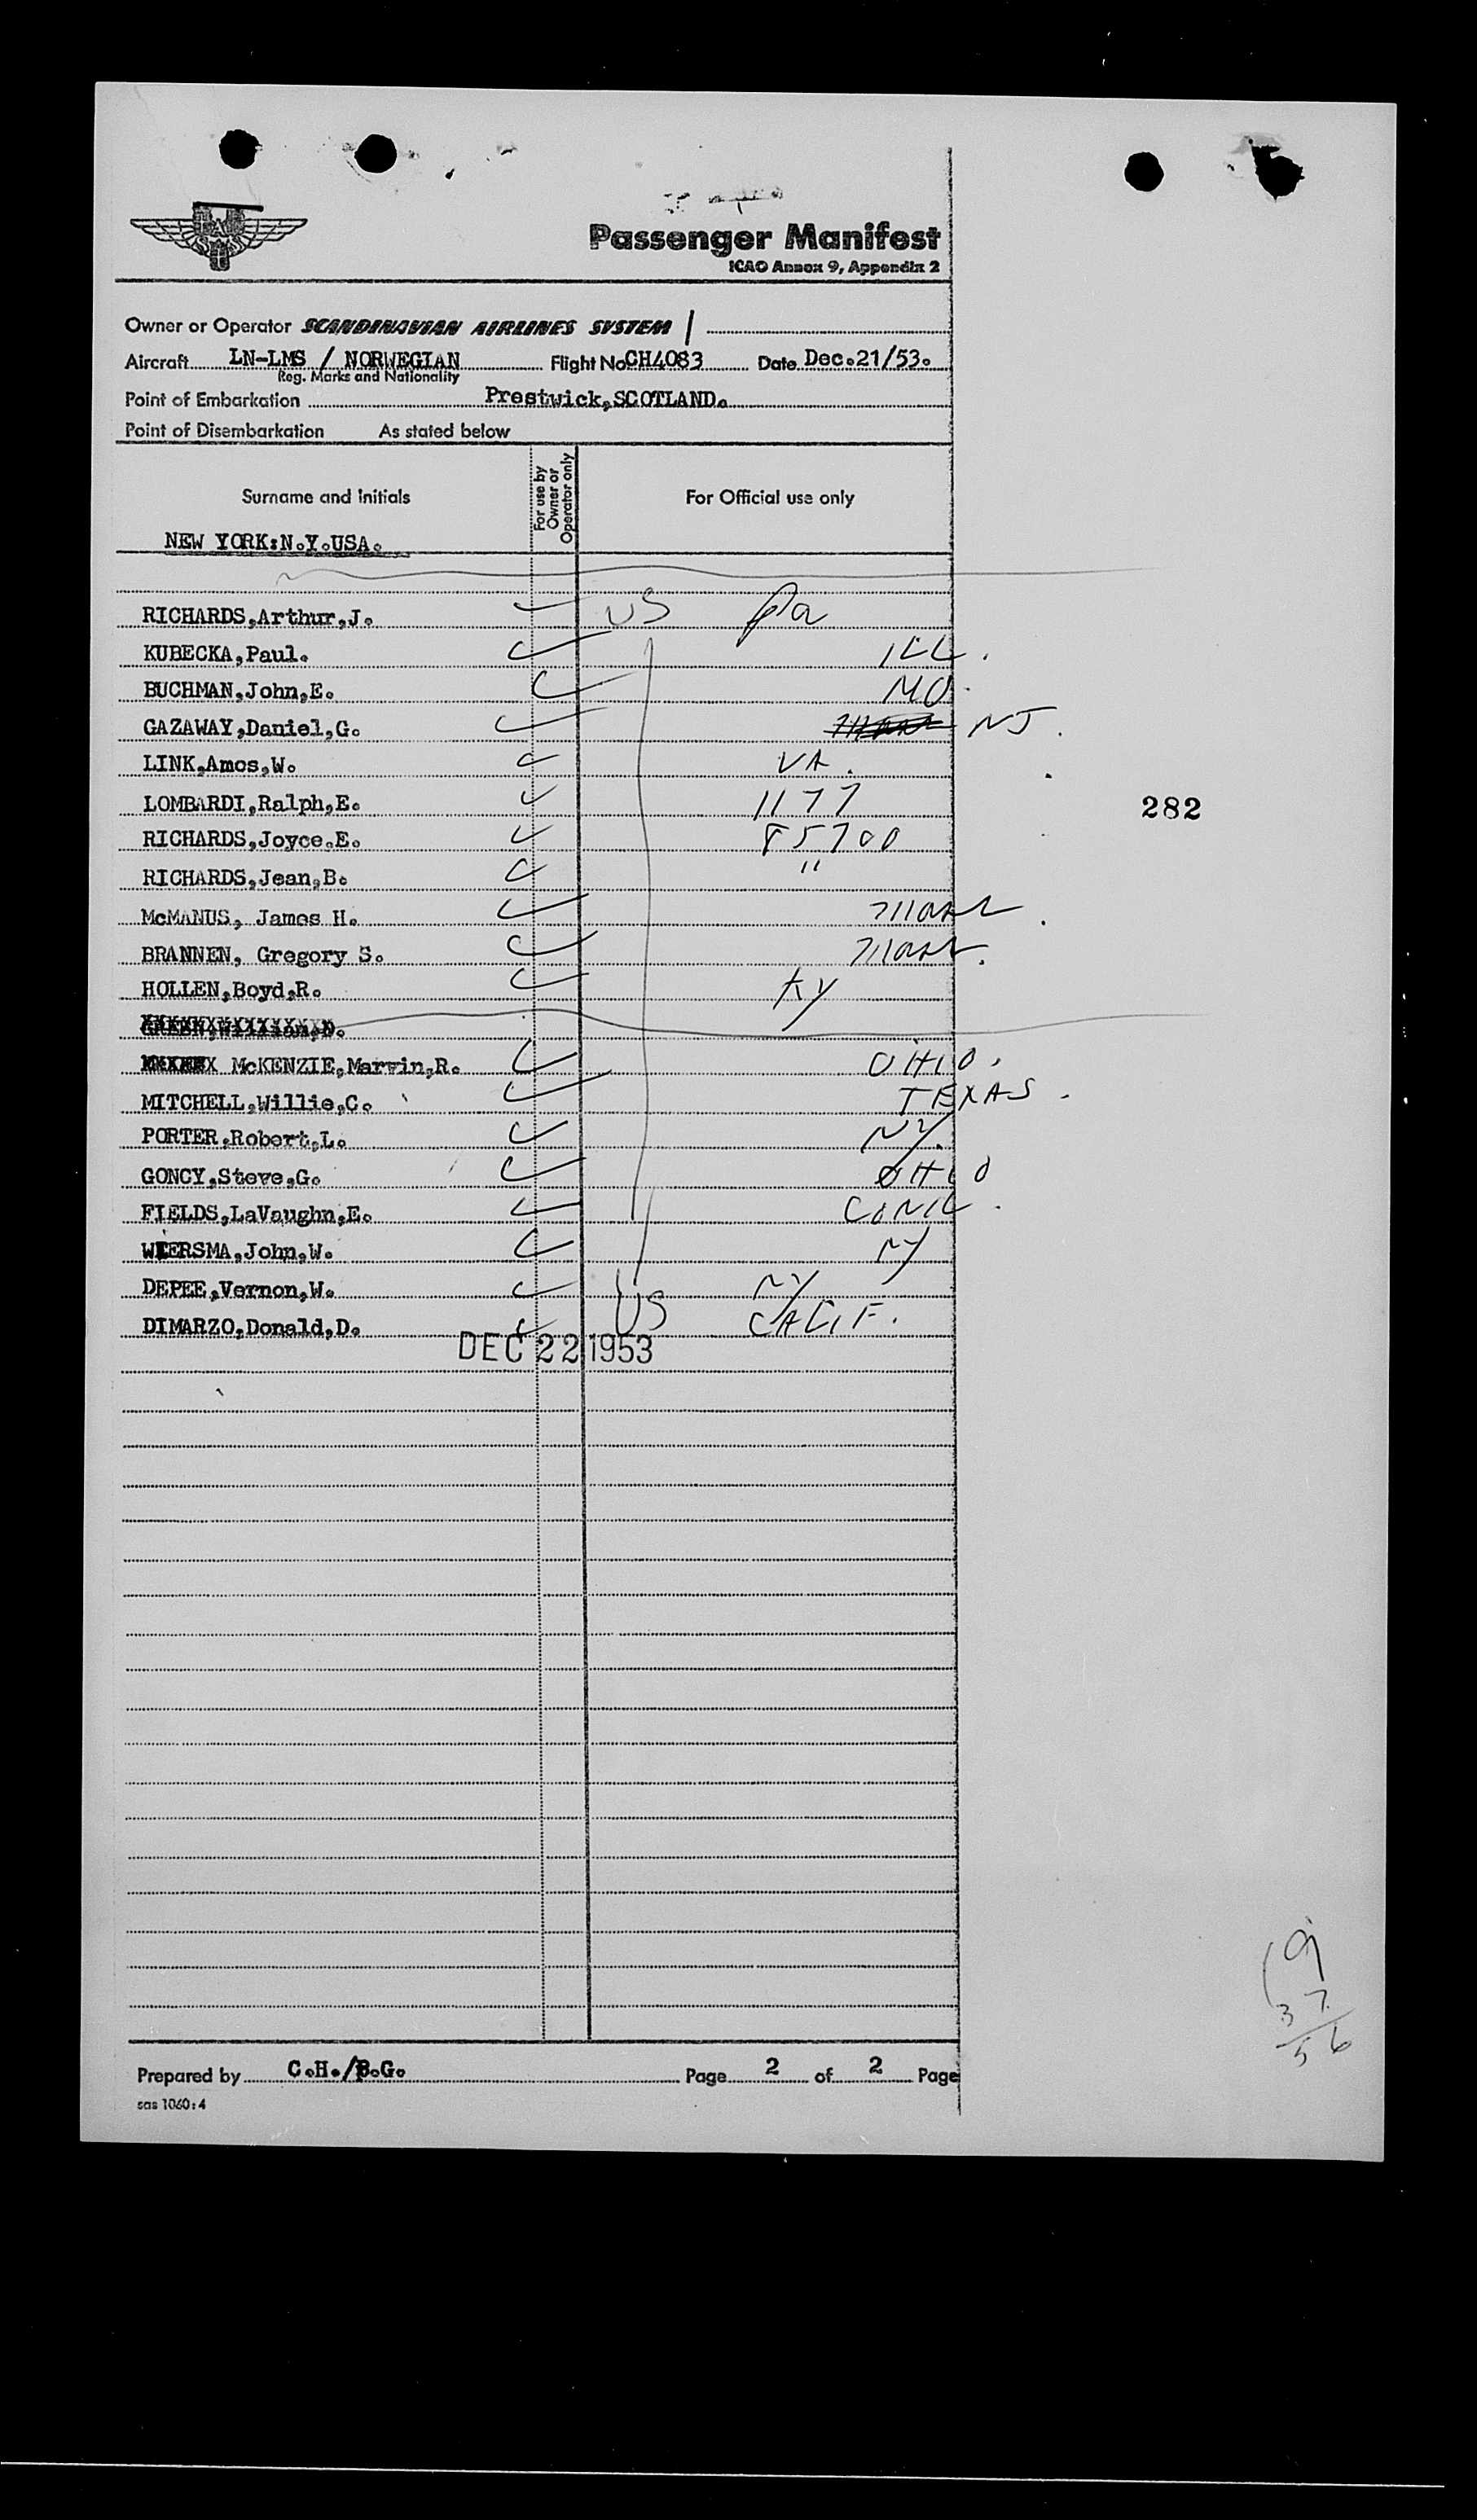 SAS
Passenger Manifest
ICAO Annex 9, Appendix 2
Owner or Operator SCANDINAVIAN AIRLINES SYSTEM /
Aircraft LN-LMS / NORWEGIAN Flight No CH4083 Date Dec.21/53.
Reg. Marks and Nationality
Point of Embarkation Prestwick,SCOTLAND.
Point of Disembarkation As stated below
Surname and Initials For use by Owner or Operator only For Official use only
NEW YORK:N.Y.USA.
RICHARDS,Arthur,J. US Pa
KUBECKA,Paul. ILL.
BUCHMAN,John,E. MO.
GAZAWAY,Daniel,G. NJ.
LINK,Amos,W. VA.
LOMBARDI,Ralph,E. 1177
282
RICHARDS,Joyce.E. 85700
RICHARDS,Jean,B. "
McMANUS, James H.
BRANNEN, Gregory S.
HOLLEN,Boyd,R. Ky
McKENZIE,Marvin,R. OHIO.
MITCHELL,Willie,C. TEXAS.
PORTER,Robert,L. NY.
GONCY,Steve,G. OHIO
FIELDS,LaVaughn,E.
WIERSMA,John,W. NY
DEPEE,Vernon,W. NY
DIMARZO,Donald,D. US CALIF.
DEC 22 1953
19
37
56
Prepared by C.H./B.G. Page 2 of 2 Page
sas 1060:4